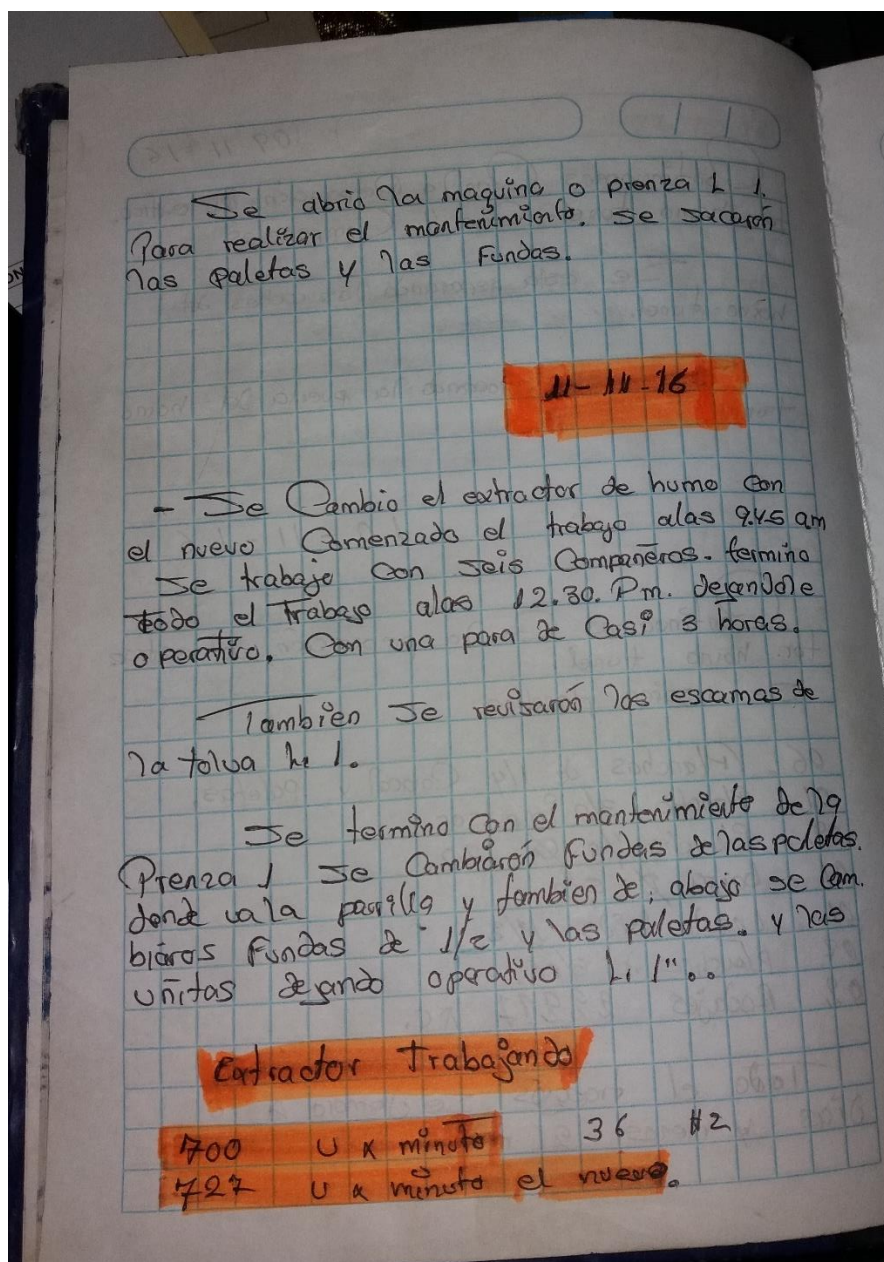 Se abrio la maquina o prenza L 1.
Para realizar el mantenimiento. se sacarón
las paletas y las Fundas.
11-11-16
- Se Cambio el extractor de humo con
el nuevo Comenzado el trabajo alas 9.45 am
se trabajo con seis Compañeros. termino
todo el trabajo alas 12.30. Pm. dejandole
operativo. Con una para de Casi 3 horas.
Tambien se revisarón las escamas de
la tolva L 1.
Se termino con el mantenimiento de la
Prenza 1 se Cambiarón fundas de las paletas.
donde va la parrilla y tambien de, abajo se Cam.
biaros fundas de 1/2 y las paletas. y las
uñitas dejando operativo L. 1"..
Extractor Trabajando
700 U x minuto 36 #2
727 U x minuto el nuevo.